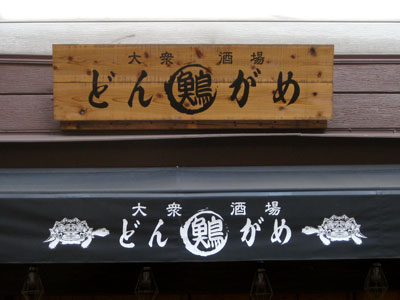 大衆 酒場
どん鷠がめ
大衆 酒場
どん鷠がめ